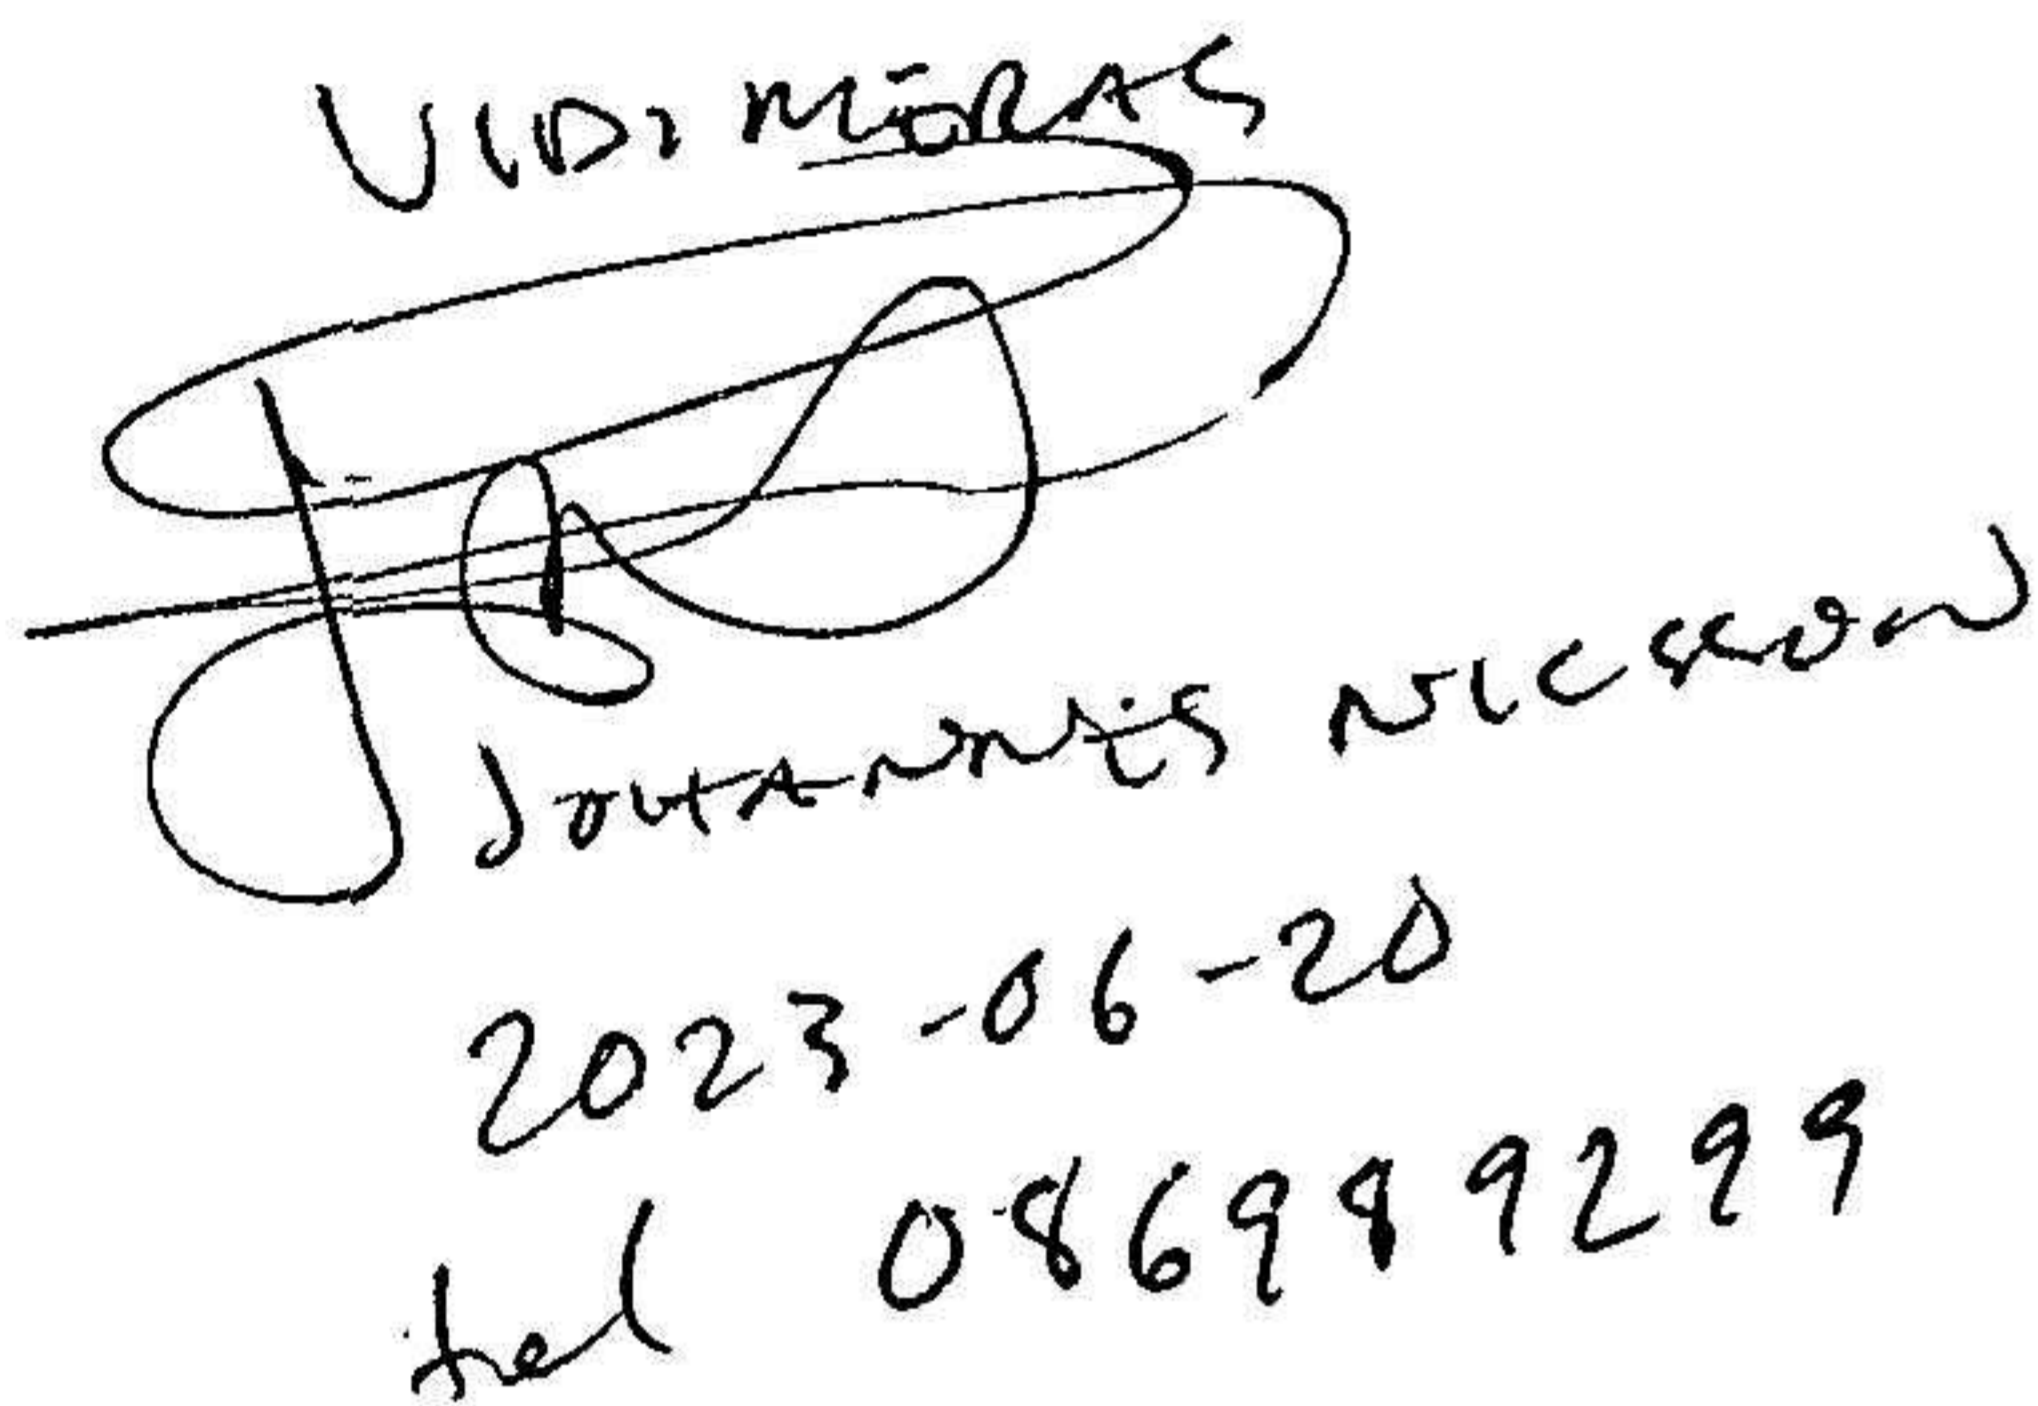 VIDIMERAS
JOHANNES NILSSON
2023-06-20
tel 0869899299